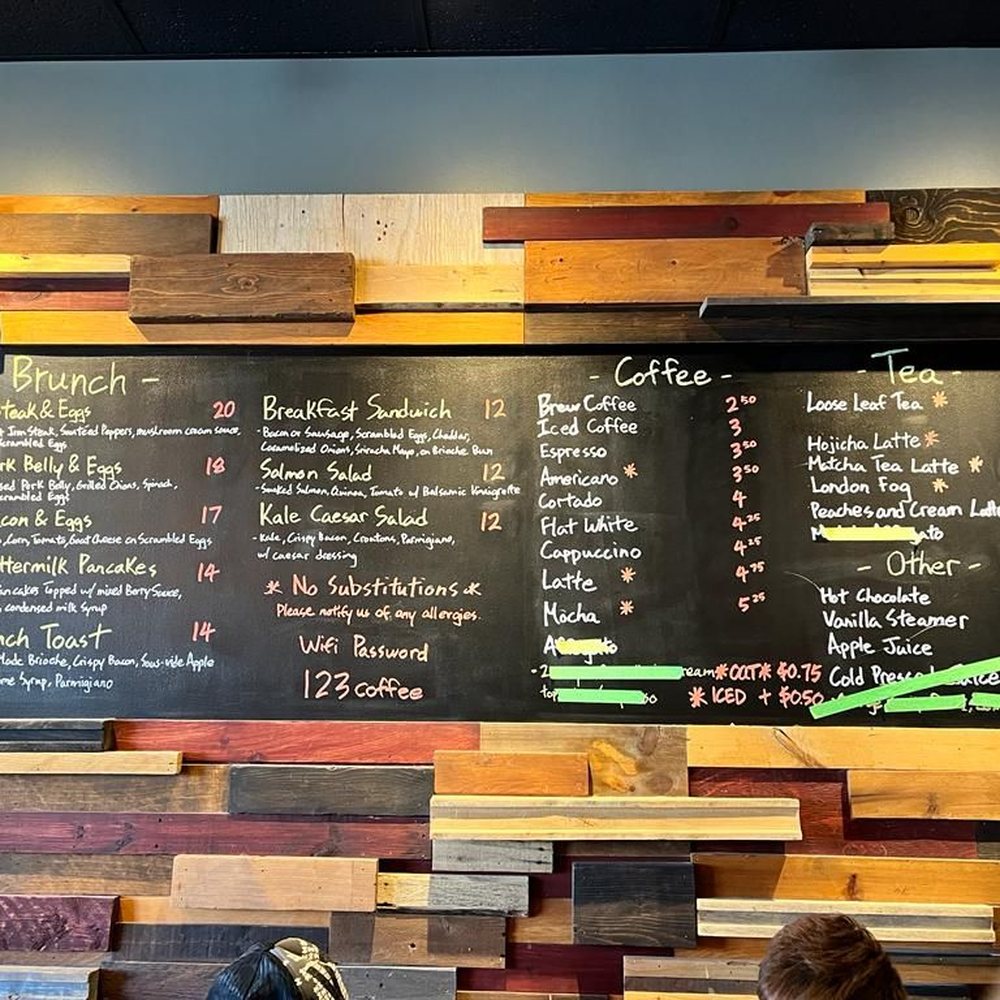 Brunch -
teak & Eggs 20
Iron Steak, Sauteed Peppers, mushroom cream sauce,
crambled Eggs
rk Belly & Eggs 18
sed Pork Belly, Grilled Onions, Spinach,
crambled Eggs
con & Eggs 17
, Corn, Tomato, Goat Cheese on Scrambled Eggs
ttermilk Pancakes 14
ancakes Topped w/ mixed Berry Sauce,
condensed milk Syrup
nch Toast 14
Made Brioche, Crispy Bacon, Sous-vide Apple
Syrup, Parmigiano
Breakfast Sandwich 12
- Bacon or Sausage, Scrambled Eggs, Cheddar,
Caramelized Onions, Sriracha Mayo, on Brioche Bun
Salmon Salad 12
- Smoked Salmon, Quinoa, Tomato w/ Balsamic Vinaigrette
Kale Caesar Salad 12
- Kale, Crispy Bacon, Croutons, Parmigiano,
w/ caesar dressing
* No Substitutions *
Please notify us of any allergies.
Wifi Password
123coffee
- Coffee -
Brew Coffee 2.50
Iced Coffee 3
Espresso 3.50
Americano * 3.50
Cortado 4
Flat White 4.25
Cappuccino 4.25
Latte * 4.75
Mocha * 5.25
*OAT* $0.75
* ICED + $0.50
- Tea -
Loose Leaf Tea *
Hojicha Latte *
Matcha Tea Latte *
London Fog *
Peaches and Cream Latte
- Other -
Hot Chocolate
Vanilla Steamer
Apple Juice
Cold